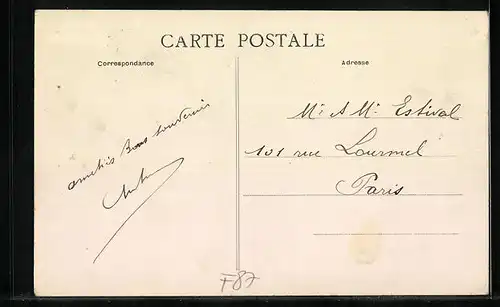 CARTE POSTALE
Correspondance
Adresse
amitiés Bons souvenirs
Mr A Mr Estival
101 rue Lourmel
Paris
F87